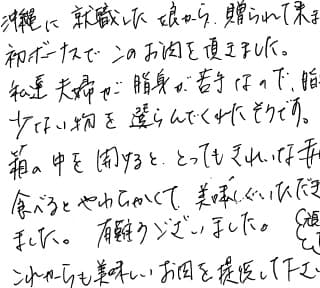 沖縄に就職した娘から、贈られて来ま
初ボーナスでこのお肉を頂きました。
私達夫婦が脂身が苦手なので、脂
少ない物を選らんでくれたそうです。
箱の中を開けると、とってもきれいな
食べるとやわらかくて、美味しくいただき
ました。有難うございました。
これからも美味しいお肉を提供して下さい